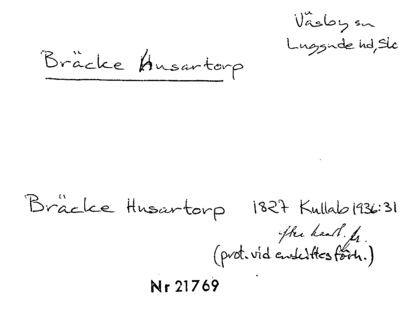 Väsby sn
Luggude hd, Sk
Bräcke Husartorp
Bräcke Husartorp 1827 Kullab 1936:31
efter
(prot. vid enskiftesförh.)
Nr 21769